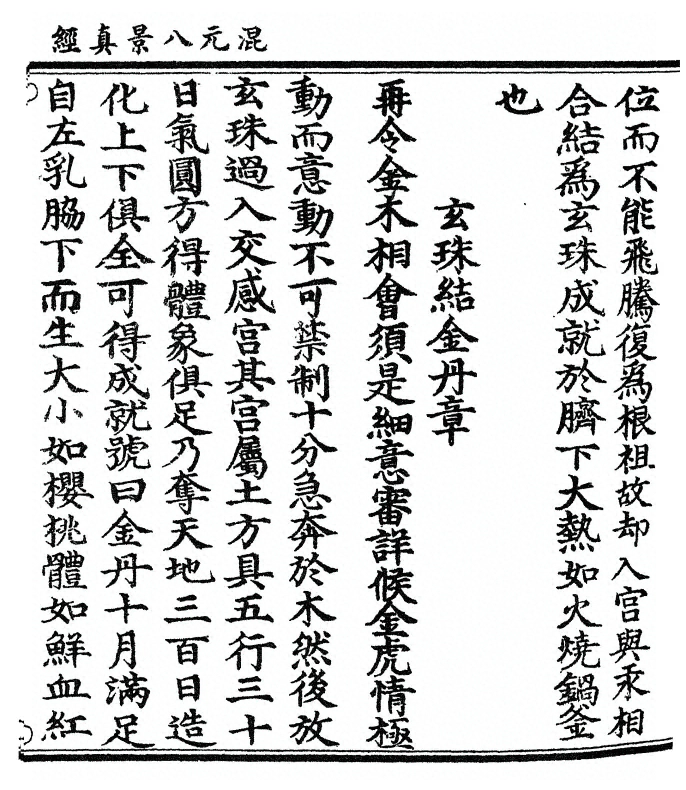 混元八景真經
位而不能飛騰復爲根祖故却入宮與汞相
合結爲玄珠成就於臍下大熱如火燒鍋釜
也
玄珠結金丹章
再令金木相會須是細意審詳候金虎情極
動而意動不可禁制十分急奔於木然後放
玄珠過入交感宮其宮屬土方具五行三十
日氣圓方得體象俱足乃奪天地三百日造
化上下俱全可得成就號曰金丹十月滿足
自左乳脇下而生大小如櫻桃體如鮮血紅